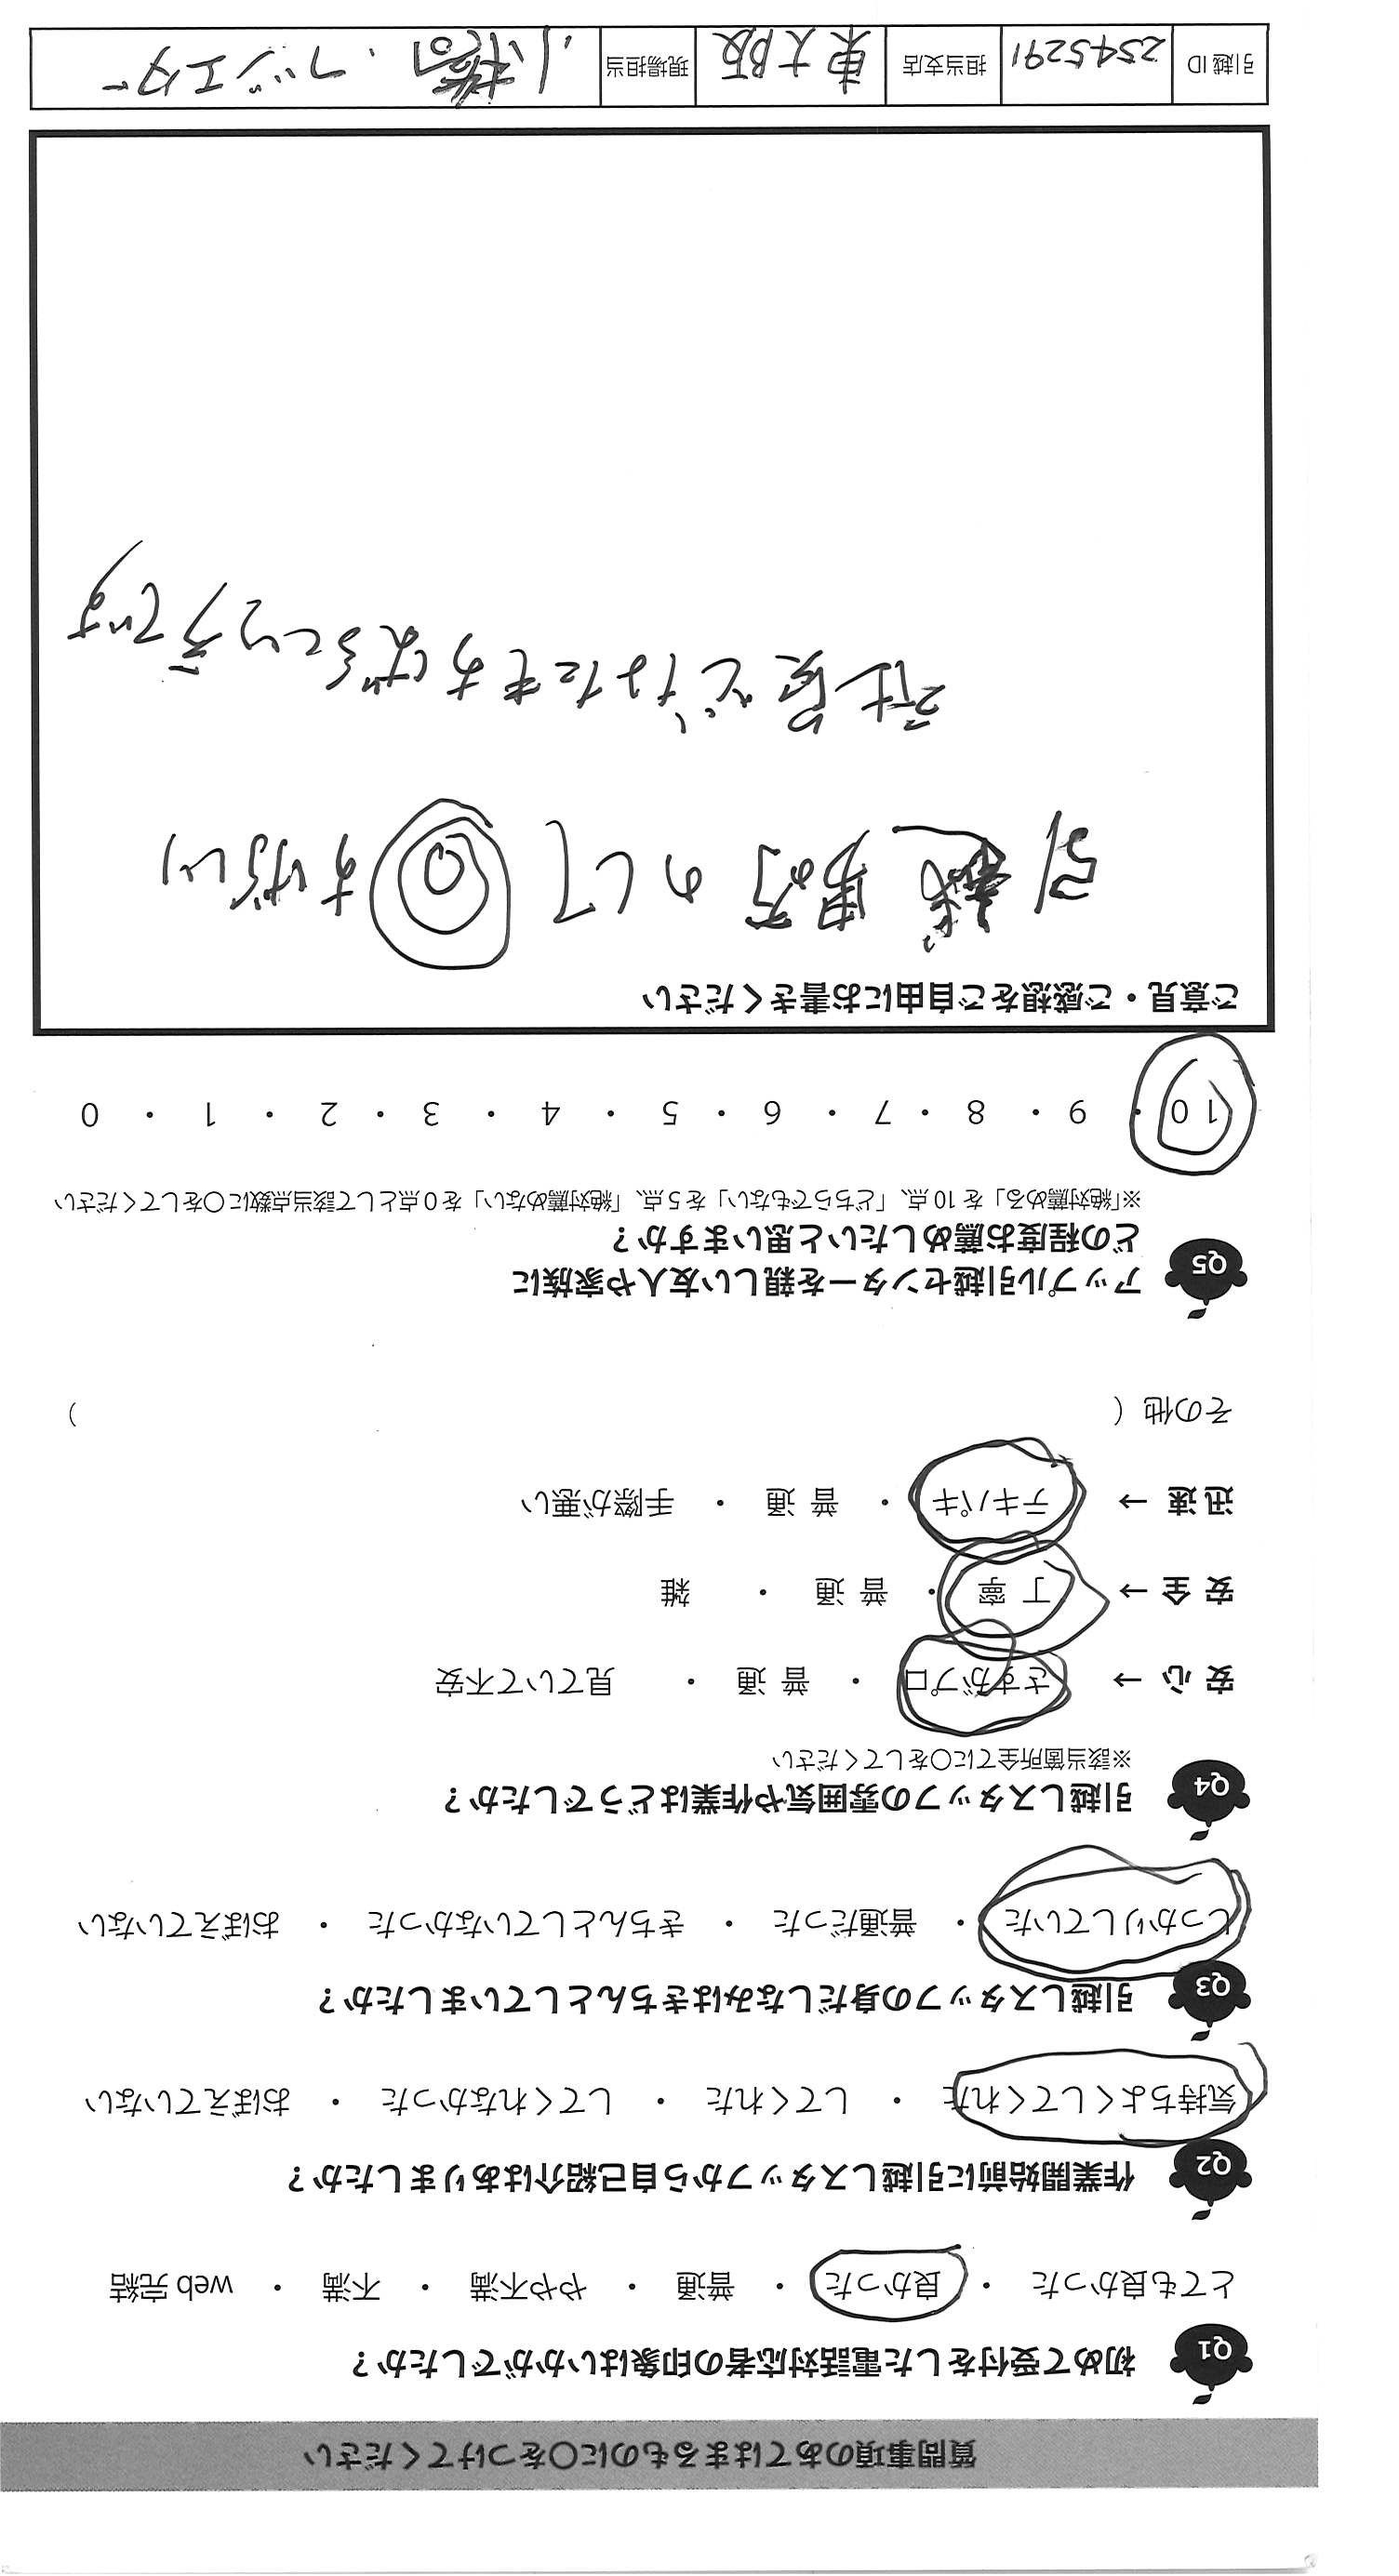 質問事項のあてはまるものに○をつけてください
Q1 初めて受付をした電話対応者の印象はいかがでしたか？
とても良かった ・ 良かった ・ 普通 ・ やや不満 ・ 不満 ・ web 完結
Q2 作業開始前に引越しスタッフから自己紹介はありましたか？
気持ちよくしてくれた ・ してくれた ・ してくれなかった ・ おぼえていない
Q3 引越しスタッフの身だしなみはきちんとしていましたか？
しっかりしていた ・ 普通だった ・ きちんとしていなかった ・ おぼえていない
Q4 引越しスタッフの雰囲気や作業はどうでしたか？
※該当箇所全てに○をしてください
安 心 → さすがプロ ・ 普 通 ・ 見ていて不安
安 全 → 丁 寧 ・ 普 通 ・ 雑
迅 速 → テキパキ ・ 普 通 ・ 手際が悪い
その他（ ）
Q5 アップル引越センターを親しい友人や家族に
どの程度お薦めしたいと思いますか？
※「絶対薦める」を 10 点、「どちらでもない」を 5 点、「絶対薦めない」を 0 点として該当点数に○をしてください
10 ・ 9 ・ 8 ・ 7 ・ 6 ・ 5 ・ 4 ・ 3 ・ 2 ・ 1 ・ 0
ご意見・ご感想をご自由にお書きください
引越
社員どなたも
です
引越 ID 2545291 担当支店 東大阪 現場担当 小橋